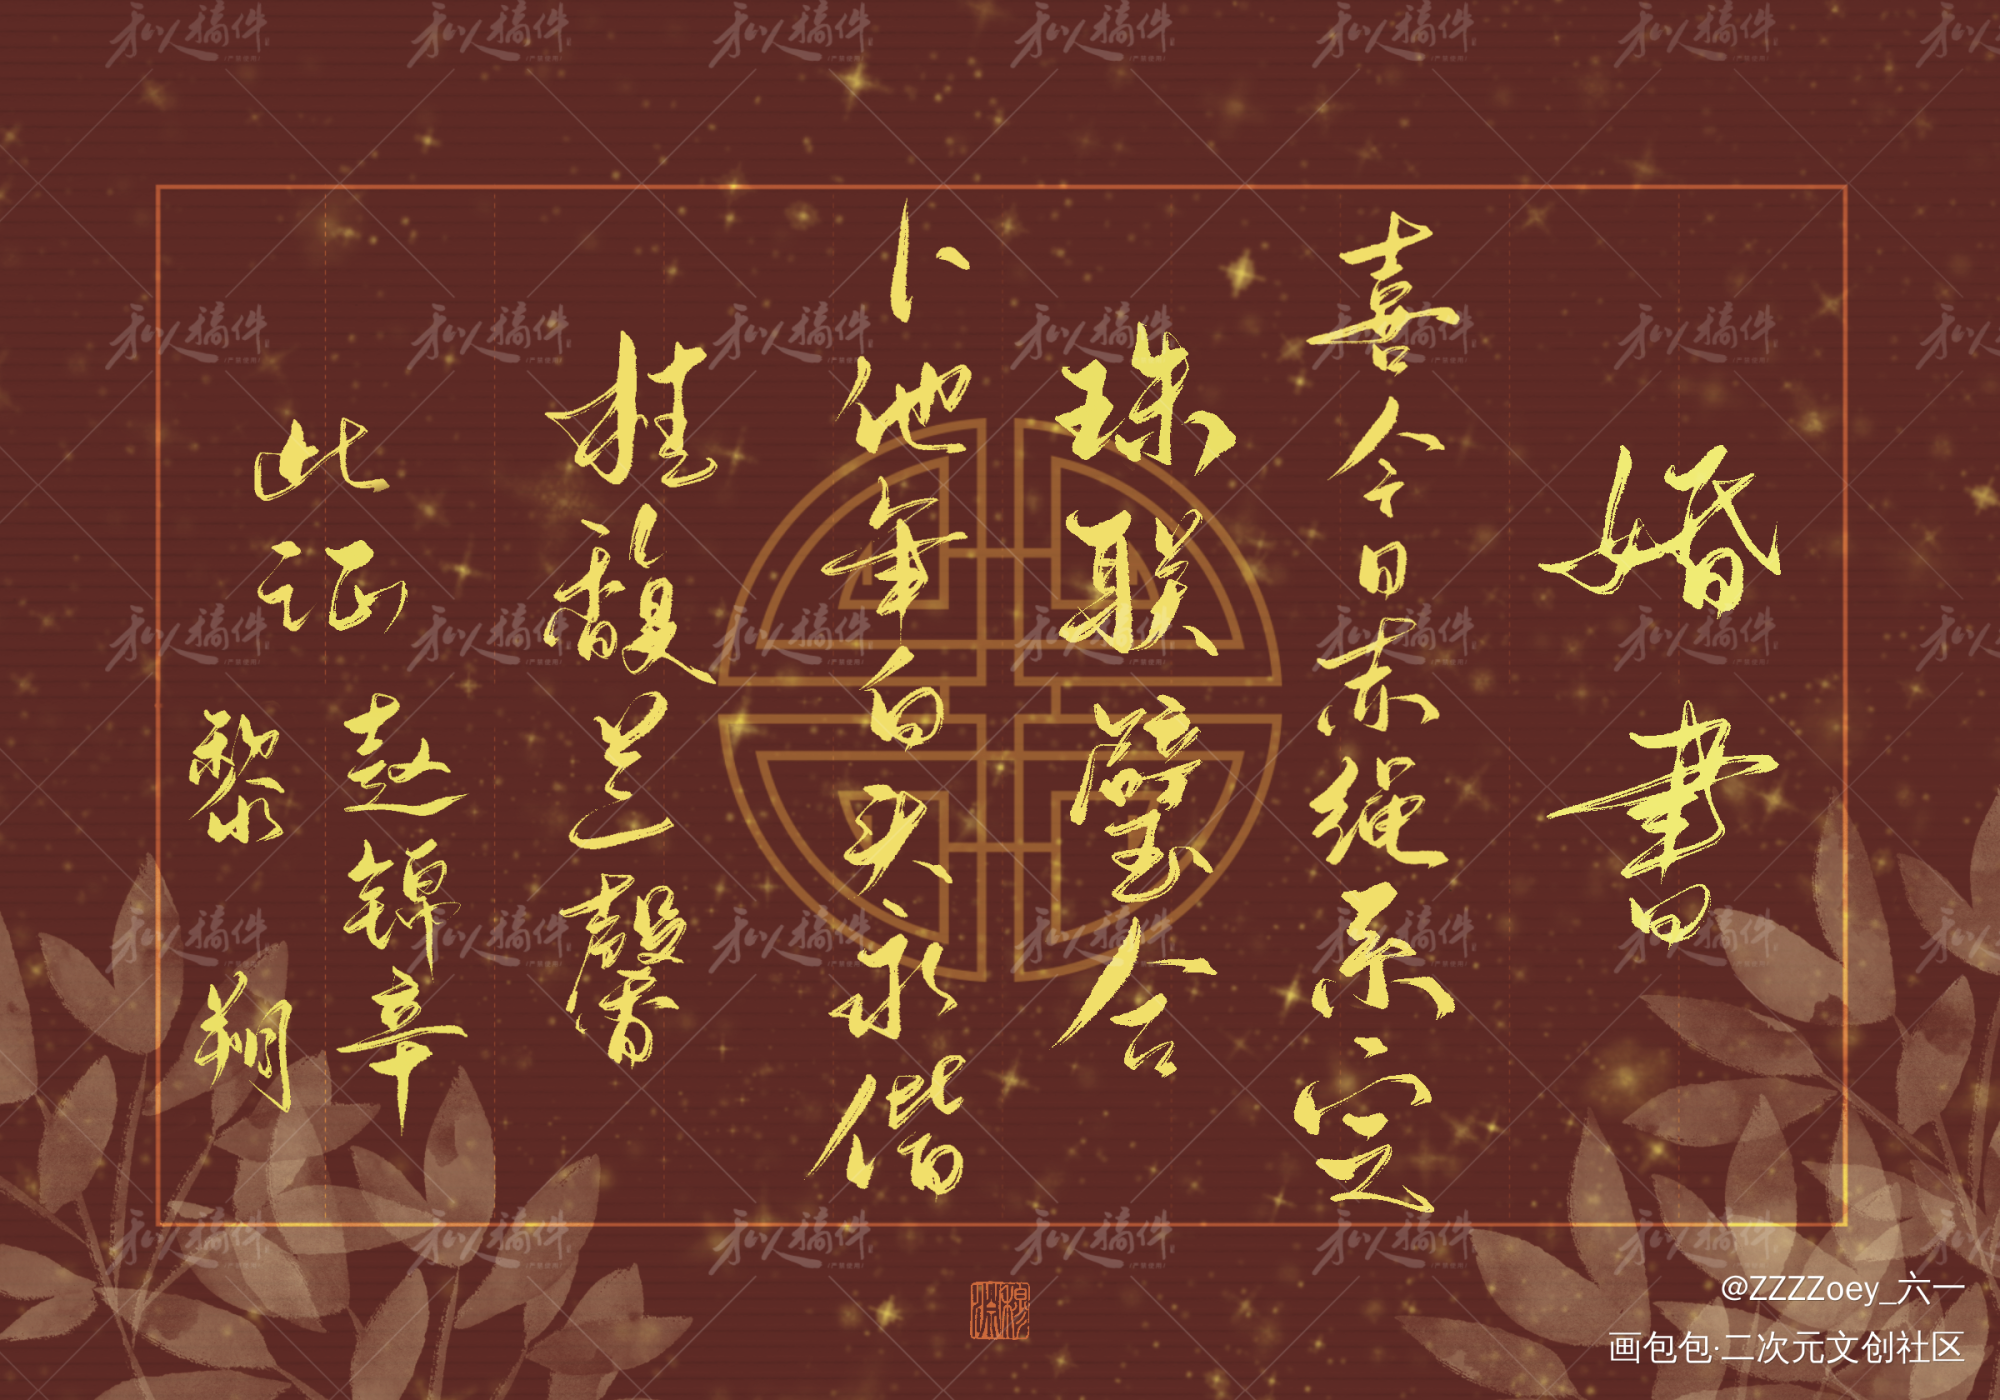 婚书
喜今日赤绳系定
珠联璧合
卜他年白头永偕
桂馥兰馨
此证
赵锦辛
黎朔
@ZZZZoey_六一
画包包·二次元文创社区
私人稿件